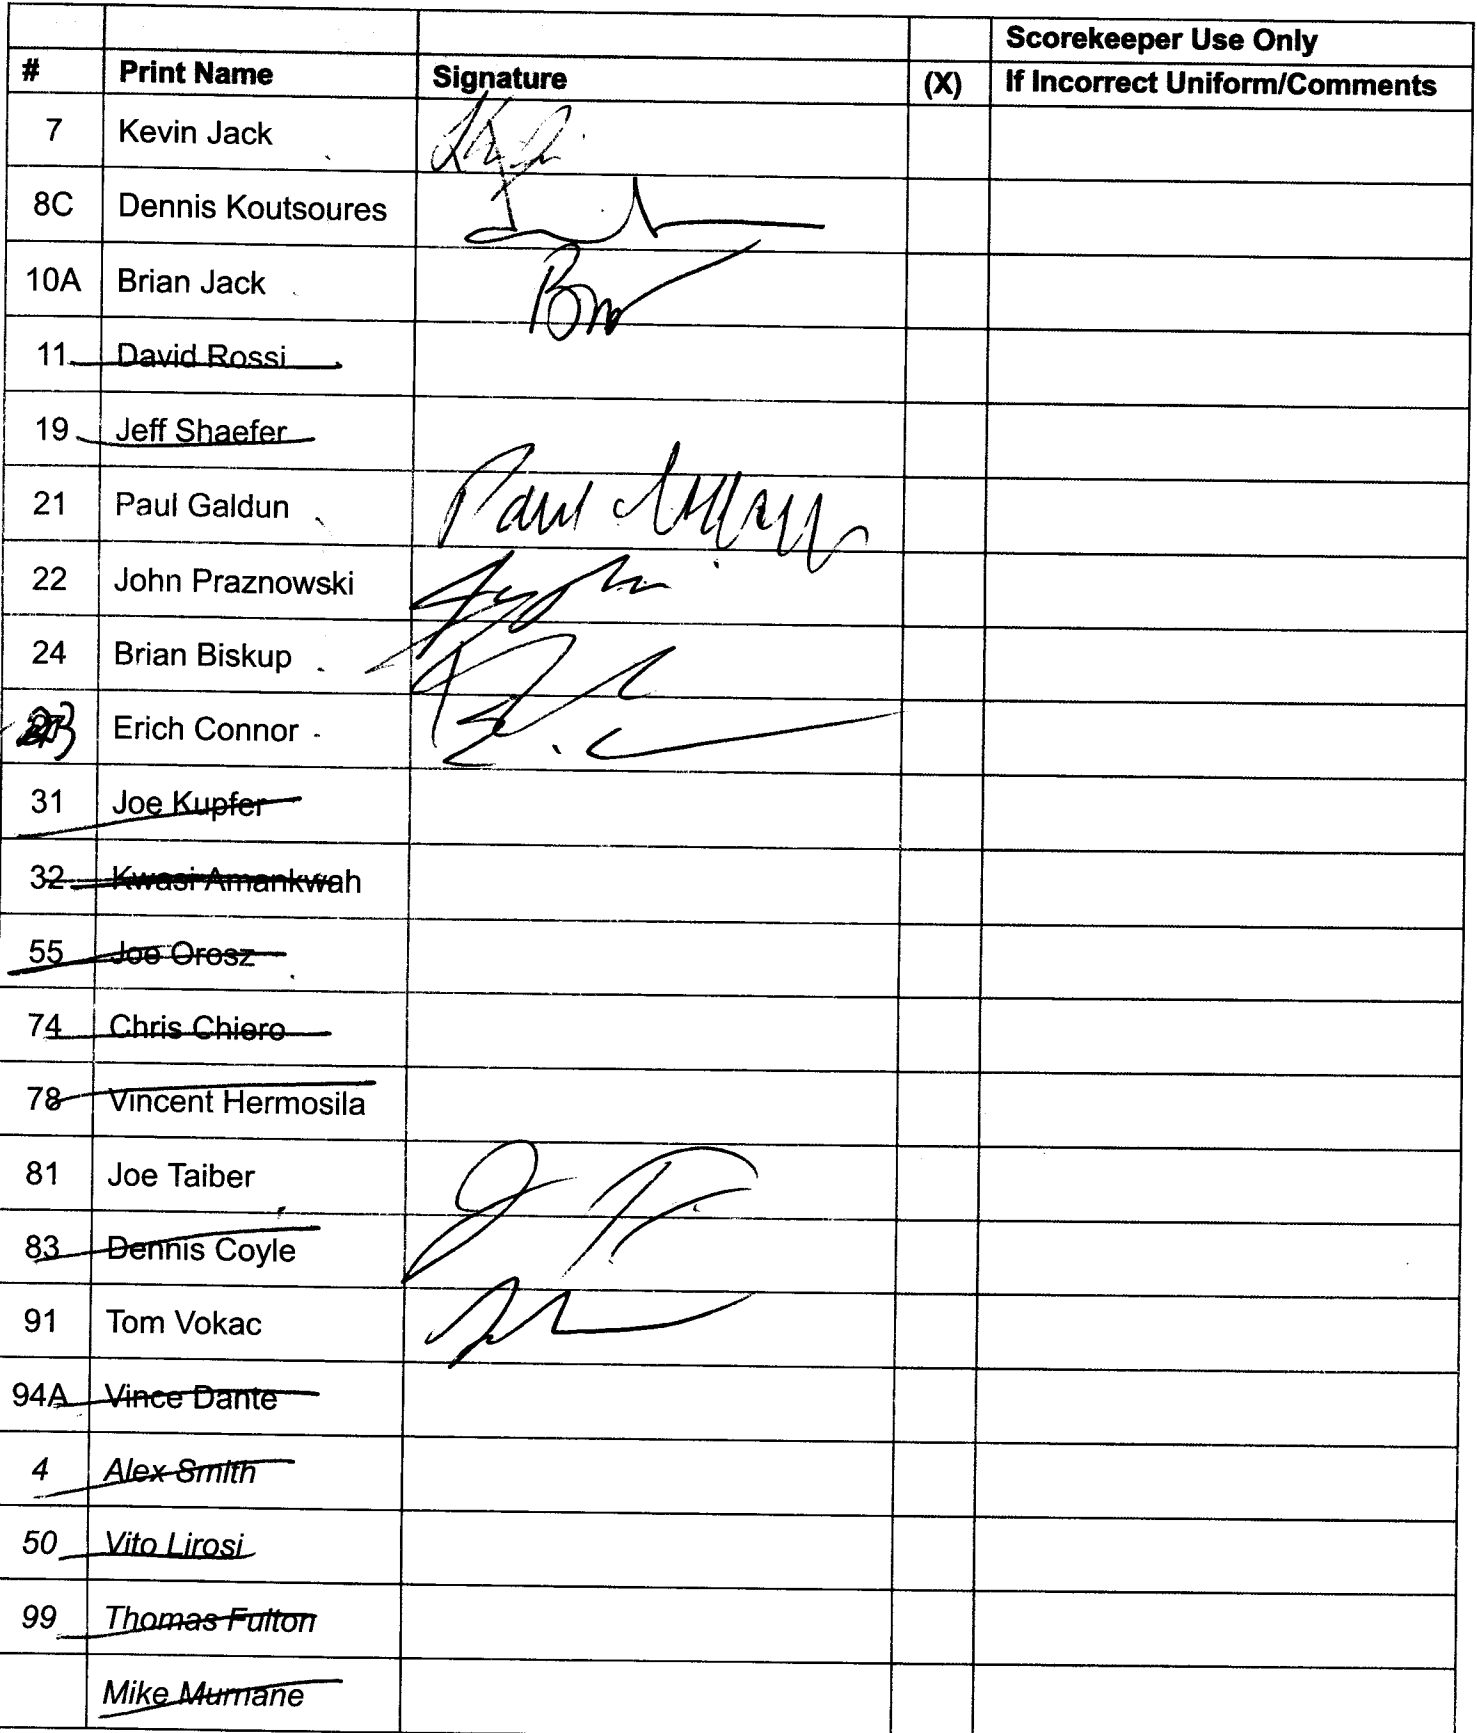 Scorekeeper Use Only
# Print Name Signature (X) If Incorrect Uniform/Comments
7 Kevin Jack
8C Dennis Koutsoures
10A Brian Jack
11 David Rossi
19 Jeff Shaefer
21 Paul Galdun Paul
22 John Praznowski
24 Brian Biskup
Erich Connor
31 Joe Kupfer
32 Kwasi Amankwah
55 Joe Orosz
74 Chris Chiero
78 Vincent Hermosila
81 Joe Taiber
83 Dennis Coyle
91 Tom Vokac
94A Vince Dante
4 Alex Smith
50 Vito Lirosi
99 Thomas Fulton
Mike Murnane